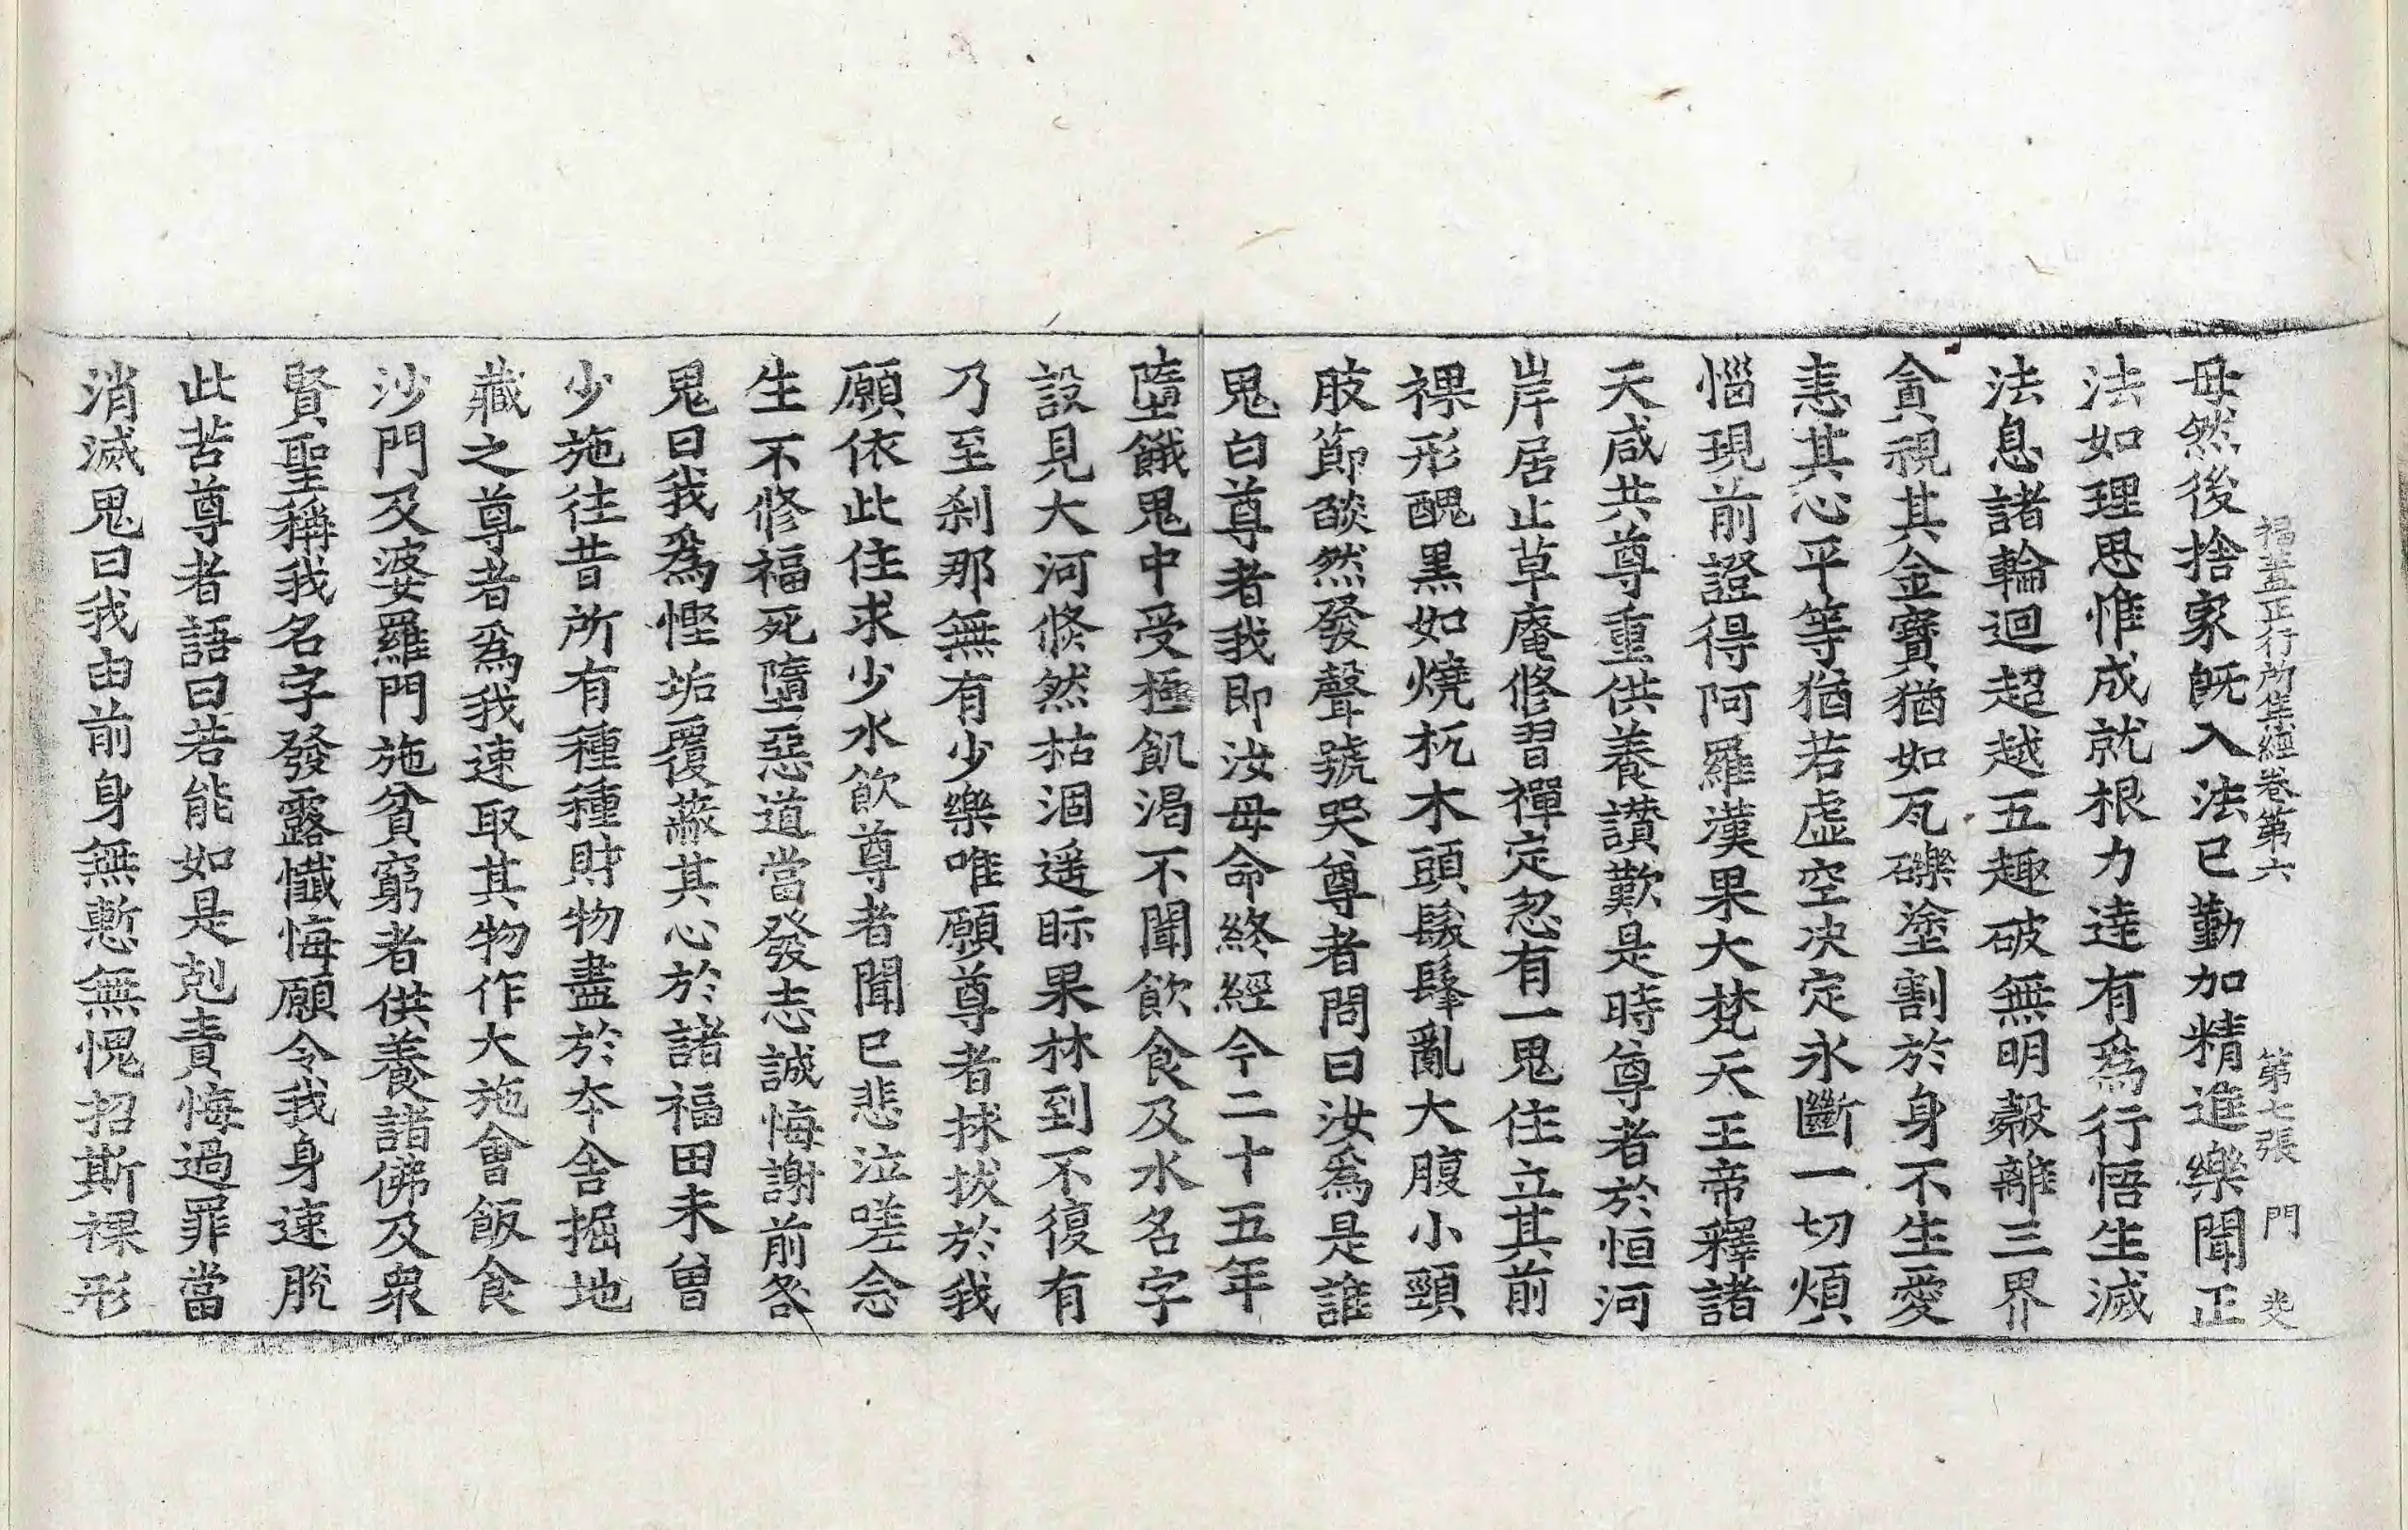 福盖正行所集經卷第六　第七張　門
母然後捨家旣入法已勤加精進樂聞正
法如理思惟成就根力達有爲行悟生滅
法息諸輪迴超越五趣破無明㲉離三界
貪視其金寶猶如瓦礫塗割於身不生愛
恚其心平等猶若虛空决定永斷一切煩
惱現前證得阿羅漢果大梵天王帝釋諸
天咸共尊重供養讃歎是時尊者於恒河
岸居止草庵修習禪定忽有一鬼住立其前
裸形醜黑如燒杌木頭髮髼亂大腹小頸
肢節燄然發聲號哭尊者問曰汝爲是誰
鬼白尊者我即汝母命終經今二十五年
墮餓鬼中受極飢渴不聞飲食及水名字
設見大河倐然枯涸遥眎果林到不復有
乃至刹那無有少樂唯願尊者捄拔於我
願依此住求少水飲尊者聞已悲泣嗟念
生不修福死墮惡道當發志誠悔謝前咎
鬼曰我爲慳垢覆蔽其心於諸福田未曾
少施往昔所有種種財物盡於本舍掘地
藏之尊者爲我速取其物作大施會飯食
沙門及婆羅門施貧窮者供養諸佛及衆
賢聖稱我名字發露懺悔願令我身速脫
此苦尊者語曰若能如是剋責悔過罪當
消滅鬼曰我由前身無慙無愧招斯裸形